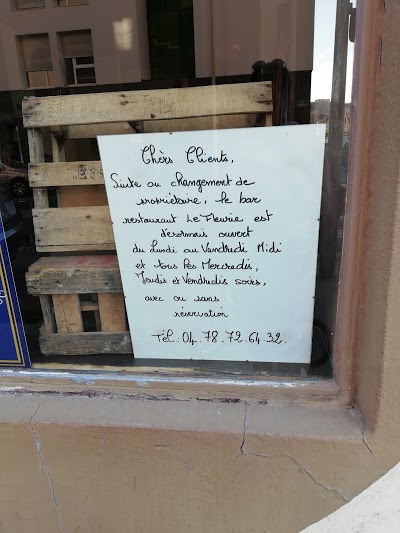 Chèrs Clients,
Suite au changement de
propriétaire, le bar
restaurant Le Fleurie est
désormais ouvert
du Lundi au Vendredi Midi
et tous les Mercredis,
Jeudis et Vendredis soirs,
avec ou sans
réservation
Tél.: 04.78.72.64.32.